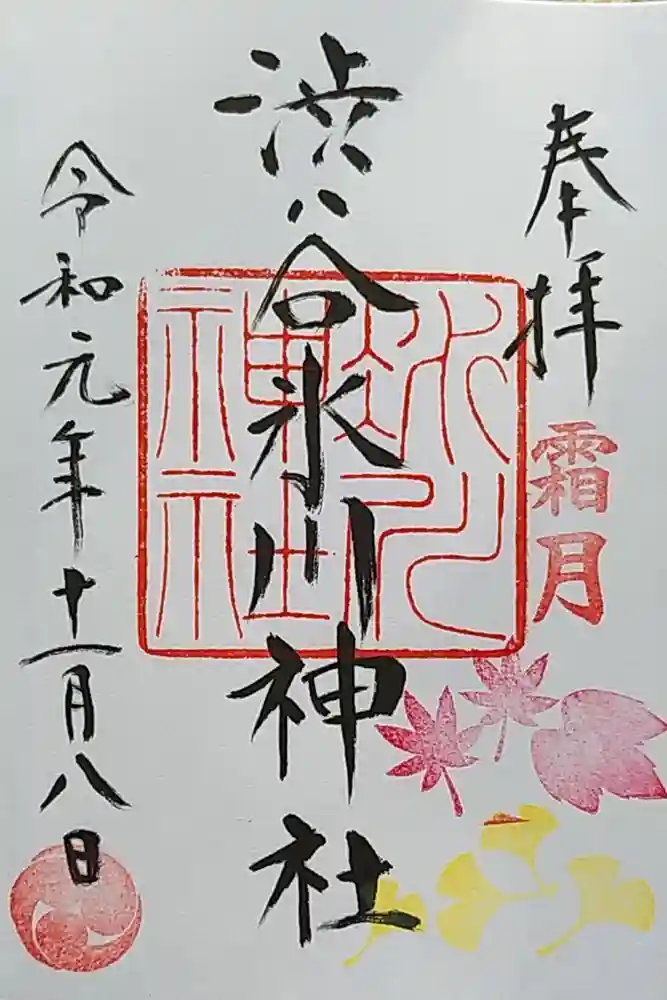 奉拝
霜月
渋谷氷川神社
氷川神社
令和元年十一月八日